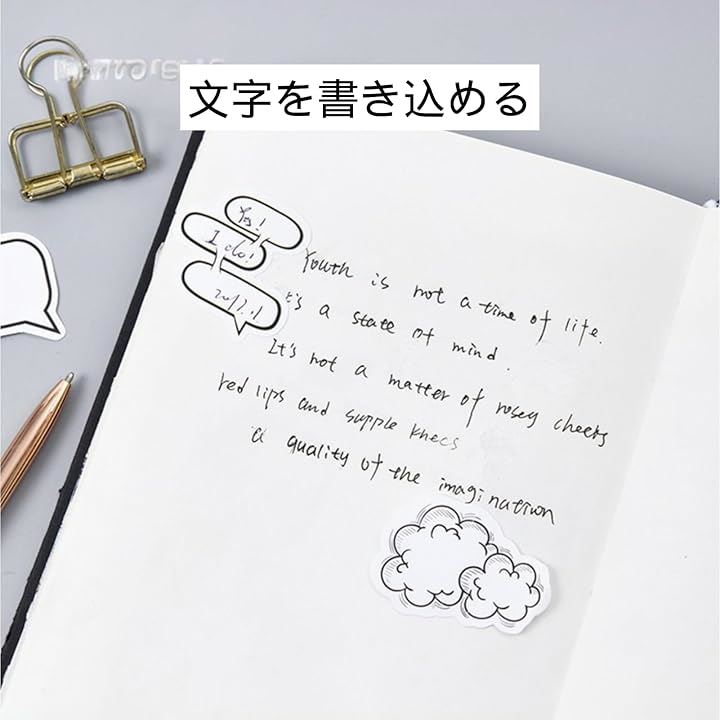 文字を書き込める
Yes!
I do!
Youth is not a time of life.
it's a state of mind.
It's not a matter of rosey cheeks
red lips and supple knees
a quality of the imagination